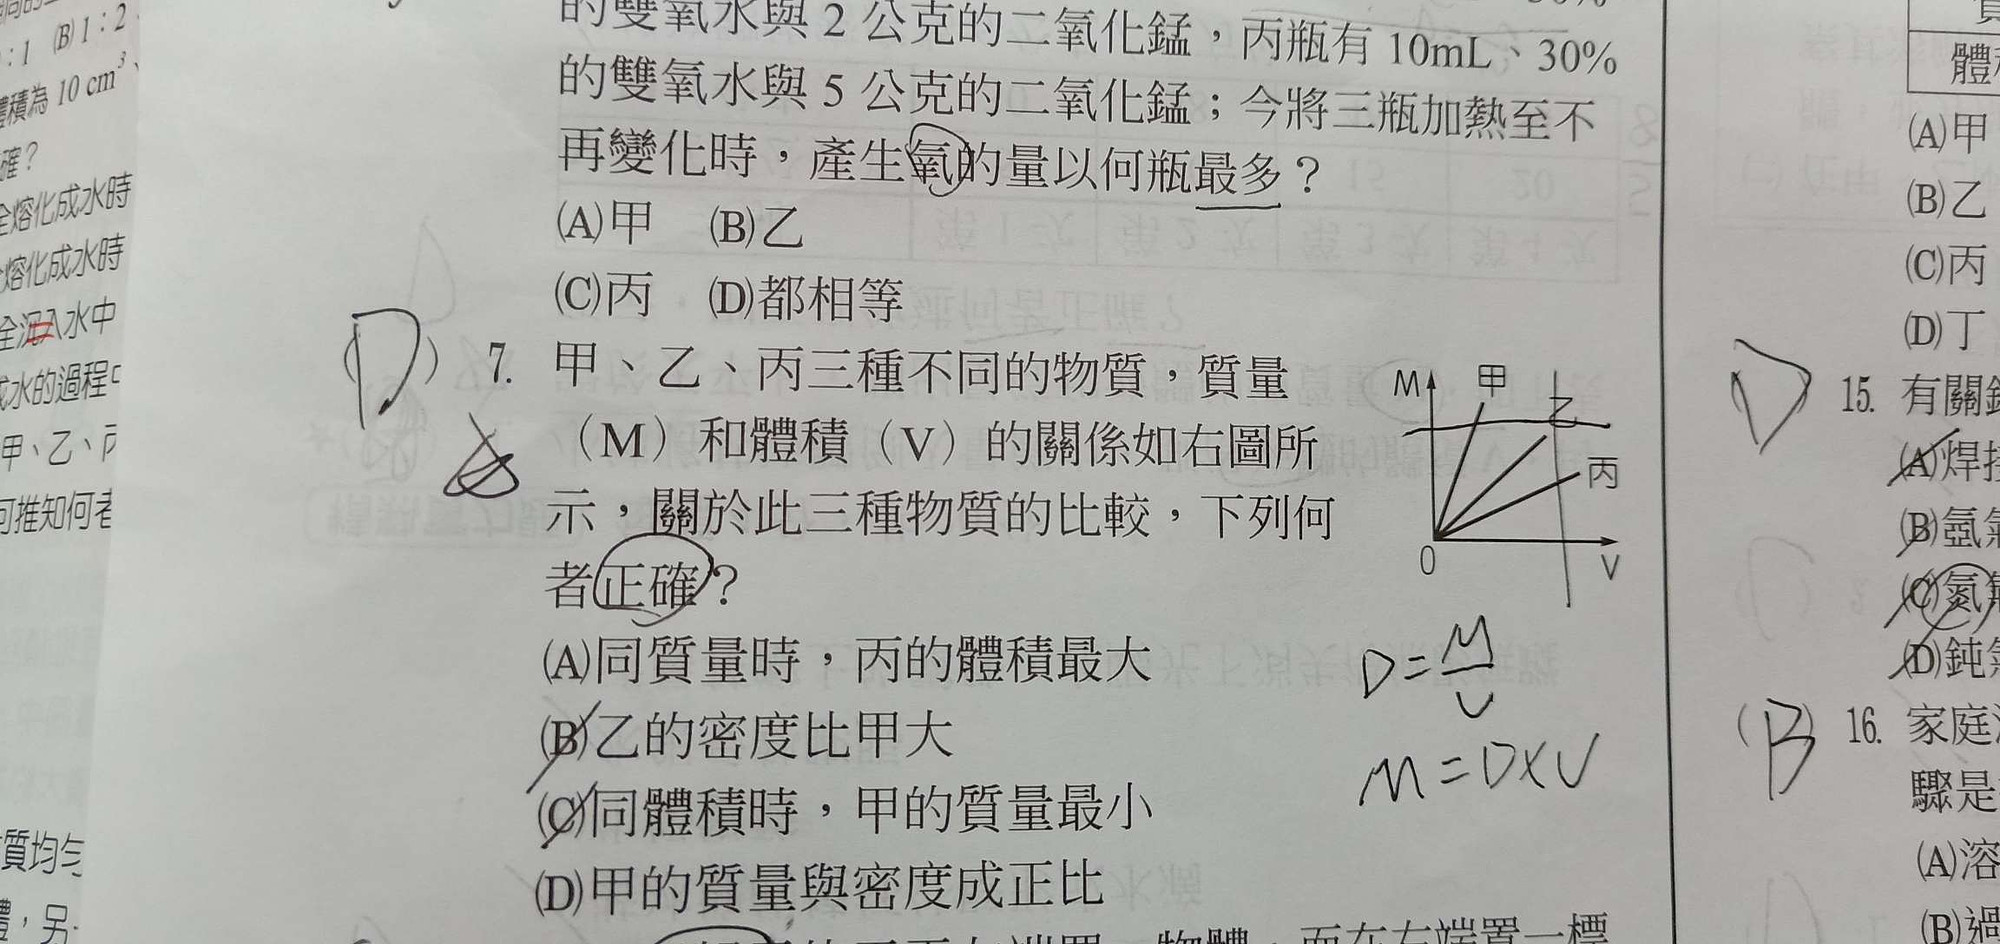 :1 (B)1:2
體積為 10 cm³、
確?
全熔化成水時
熔化成水時
全沉入水中
成水的過程中
甲、乙、丙
可推知何者
質均勻
體,另
的雙氧水與 2 公克的二氧化錳,丙瓶有 10mL、30%
的雙氧水與 5 公克的二氧化錳;今將三瓶加熱至不
再變化時,產生氧的量以何瓶最多?
(A)甲 (B)乙
(C)丙 (D)都相等
(D) 7. 甲、乙、丙三種不同的物質,質量
(M)和體積(V)的關係如右圖所
示,關於此三種物質的比較,下列何
者正確?
(A)同質量時,丙的體積最大
(B)乙的密度比甲大
(C)同體積時,甲的質量最小
(D)甲的質量與密度成正比
M 甲
乙
丙
0 V
D=M/V
M=D×V
體積
(A)甲
(B)乙
(C)丙
(D)丁
15. 有關
(A)焊接
(B)氬氣
(C)氮
(D)鈍氣
(B) 16. 家庭
驟是
(A)溶
(B)過